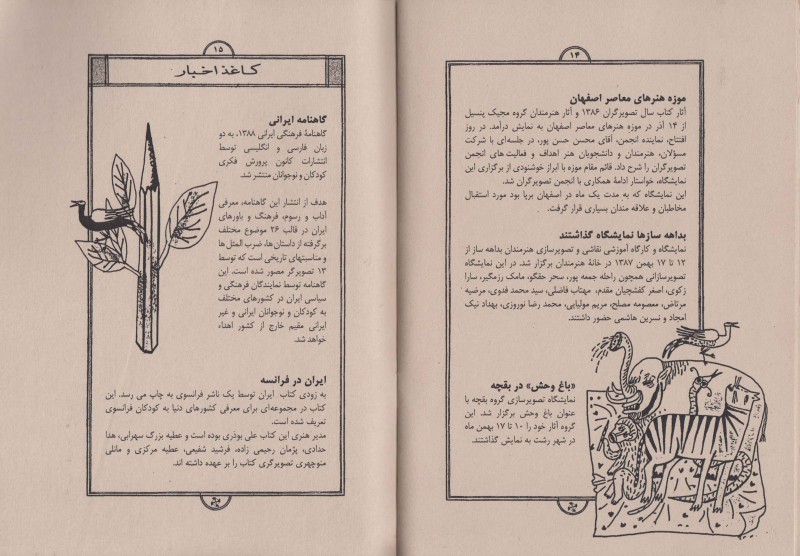 ۱۴
موزه هنرهای معاصر اصفهان
آثار کتاب سال تصویرگران ۱۳۸۶ و آثار هنرمندان گروه مجیک پنسیل
از ۱۴ آذر در موزه هنرهای معاصر اصفهان به نمایش درآمد. در روز
افتتاح، نماینده انجمن، آقای محسن حسن پور، در جلسه‌ای با شرکت
مسؤلان، هنرمندان و دانشجویان هنر اهداف و فعالیت های انجمن
تصویرگران را شرح داد. قائم مقام موزه با ابراز خوشنودی از برگزاری این
نمایشگاه، خواستار ادامهٔ همکاری با انجمن تصویرگران شد.
این نمایشگاه که به مدت یک ماه در اصفهان برپا بود مورد استقبال
مخاطبان و علاقه مندان بسیاری قرار گرفت.
بداهه سازها نمایشگاه گذاشتند
نمایشگاه و کارگاه آموزشی نقاشی و تصویرسازی هنرمندان بداهه ساز از
۱۲ تا ۱۷ بهمن ۱۳۸۷ در خانهٔ هنرمندان برگزار شد. در این نمایشگاه
تصویرسازانی همچون راحله جمعه پور، سحر حقگو، مامک رزمگیر، سارا
زکوی، اصغر کفشچیان مقدم، مهتاب فاضلی، سید محمد فدوی، مرضیه
مرتاض، معصومه مصلح، مریم مولیایی، محمد رضا نوروزی، بهداد نیک
امجاد و نسرین هاشمی حضور داشتند.
«باغ وحش» در بقچه
نمایشگاه تصویرسازی گروه بقچه با
عنوان باغ وحش برگزار شد. این
گروه آثار خود را ۱۰ تا ۱۷ بهمن ماه
در شهر رشت به نمایش گذاشتند.
۱۵
کاغذ اخبار
گاهنامه ایرانی
گاهنامهٔ فرهنگی ایرانی ۱۳۸۸، به دو
زبان فارسی و انگلیسی توسط
انتشارات کانون پرورش فکری
کودکان و نوجوانان منتشر شد.
هدف از انتشار این گاهنامه، معرفی
آداب و رسوم، فرهنگ و باورهای
ایران در قالب ۲۶ موضوع مختلف
برگرفته از داستان‌ها، ضرب المثل‌ها
و مناسبتهای تاریخی است که توسط
۱۳ تصویرگر مصور شده است. این
گاهنامه توسط نمایندگان فرهنگی و
سیاسی ایران در کشورهای مختلف
به کودکان و نوجوانان ایرانی و غیر
ایرانی مقیم خارج از کشور اهداء
خواهد شد.
ایران در فرانسه
به زودی کتاب ایران توسط یک ناشر فرانسوی به چاپ می رسد. این
کتاب در مجموعه‌ای برای معرفی کشورهای دنیا به کودکان فرانسوی
تعریف شده است.
مدیر هنری این کتاب علی بوذری بوده است و عطیه بزرگ سهرابی، هدا
حدادی، پژمان رحیمی زاده، فرشید شفیعی، عطیه مرکزی و مانلی
منوچهری تصویرگری کتاب را بر عهده داشته اند.